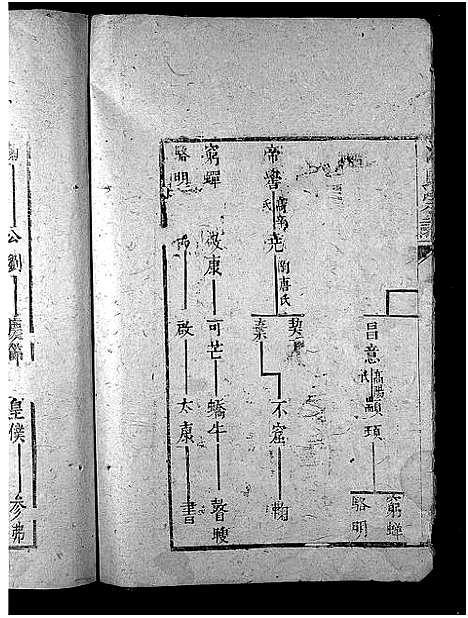 昌意 高陽氏 顓頊 窮蟬
駱明
帝嚳 高辛氏 堯 陶唐氏 契
棄 不窋 鞠
窮蟬 敬康 可芒 蟜牛 瞽瞍
駱明 啟 太康
公劉 慶節 皇僕 參弗